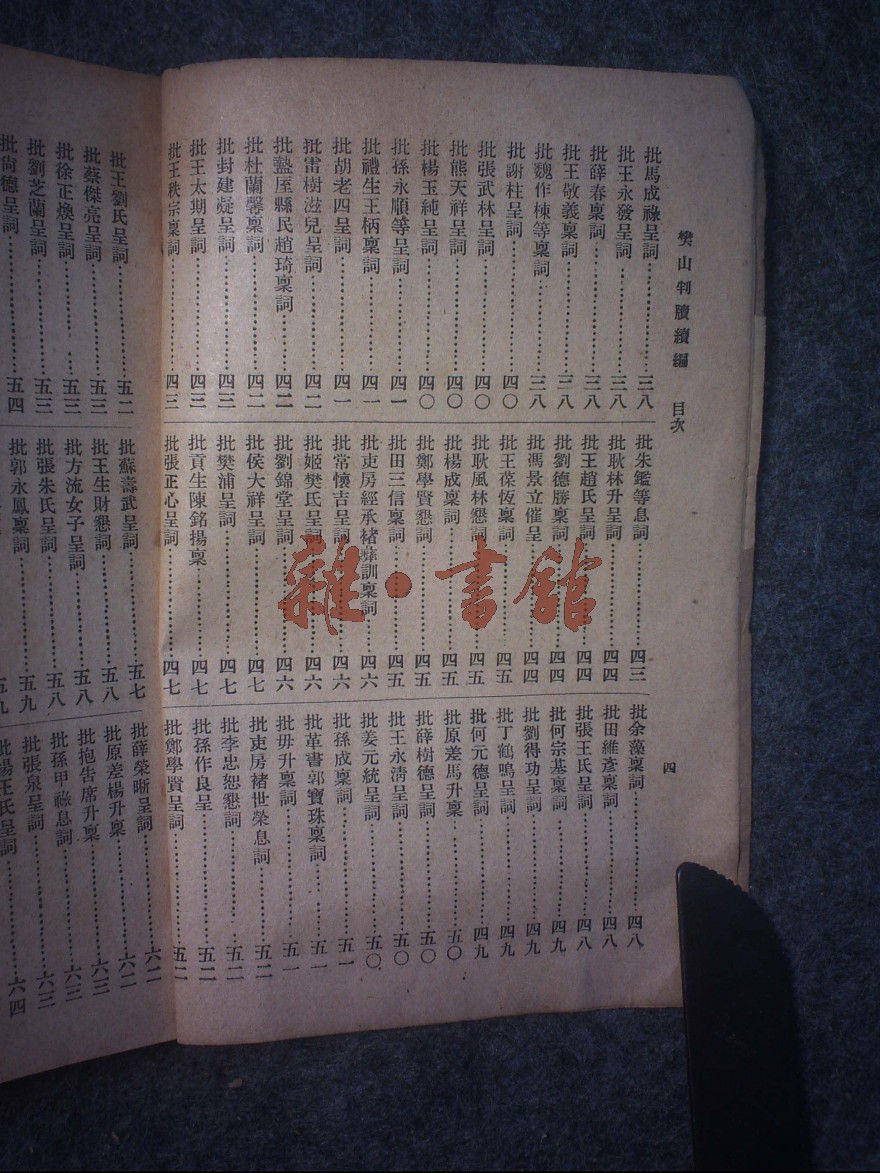 樊山判牘續編 目次
四
批馬成祿呈詞 三八
批王永發呈詞 三八
批薛春稟詞 三八
批王敬義稟詞 三八
批魏作棟等稟詞 三八
批謝柱呈詞 四〇
批張武林呈詞 四〇
批熊天祥呈詞 四〇
批楊玉純呈詞 四〇
批孫永順等呈詞 四一
批禮生王柄稟詞 四一
批胡老四呈詞 四一
批雷樹滋兒呈詞 四二
批盩厔縣民趙琦稟詞 四二
批杜蘭馨稟詞 四二
批封建凝呈詞 四三
批王太期呈詞 四三
批王秩宗稟詞 四三
批朱鑑等息詞 四三
批耿林升呈詞 四四
批王趙氏呈詞 四四
批劉德勝稟詞 四四
批馮景立催呈 四四
批王葆恆稟詞 四五
批耿風林懇詞 四五
批楊成稟詞 四五
批鄭學賢懇詞 四五
批田三信稟詞 四五
批吏房經承褚彝訓稟詞 四六
批常懷吉呈詞 四六
批姬樊氏呈詞 四六
批劉錦堂呈詞 四六
批侯大祥呈詞 四七
批樊浦呈詞 四七
批貢生陳銘揚稟 四七
批張正心呈詞 四七
批余藻稟詞 四八
批田維彥稟詞 四八
批張王氏呈詞 四八
批何宗基稟詞 四九
批劉得功呈詞 四九
批丁鶴鳴呈詞 四九
批何元德呈詞 四九
批原差馬升稟 五〇
批薛樹德呈詞 五〇
批王永淸呈詞 五〇
批姜元統呈詞 五〇
批孫成稟詞 五一
批革書郭寶珠稟詞 五一
批毋升稟詞 五一
批吏房褚世榮息詞 五二
批李忠恕懇詞 五二
批孫作良呈 五二
批鄭學賢呈詞 五二
批王劉氏呈詞 五二
批蔡傑亮呈詞 五三
批徐正煥呈詞 五三
批劉芝蘭呈詞 五三
批尙德呈詞 五四
批蘇壽武呈詞 五七
批王生財懇詞 五八
批方流女子呈詞 五八
批張朱氏呈詞 五八
批郭永鳳稟詞 五九
五九
批薛榮晰呈詞 六二
批原差楊升稟 六二
批抱吿席升稟 六三
批孫甲祿息詞 六三
批張泉呈詞 六三
批楊王氏呈詞 六四
雜·書館